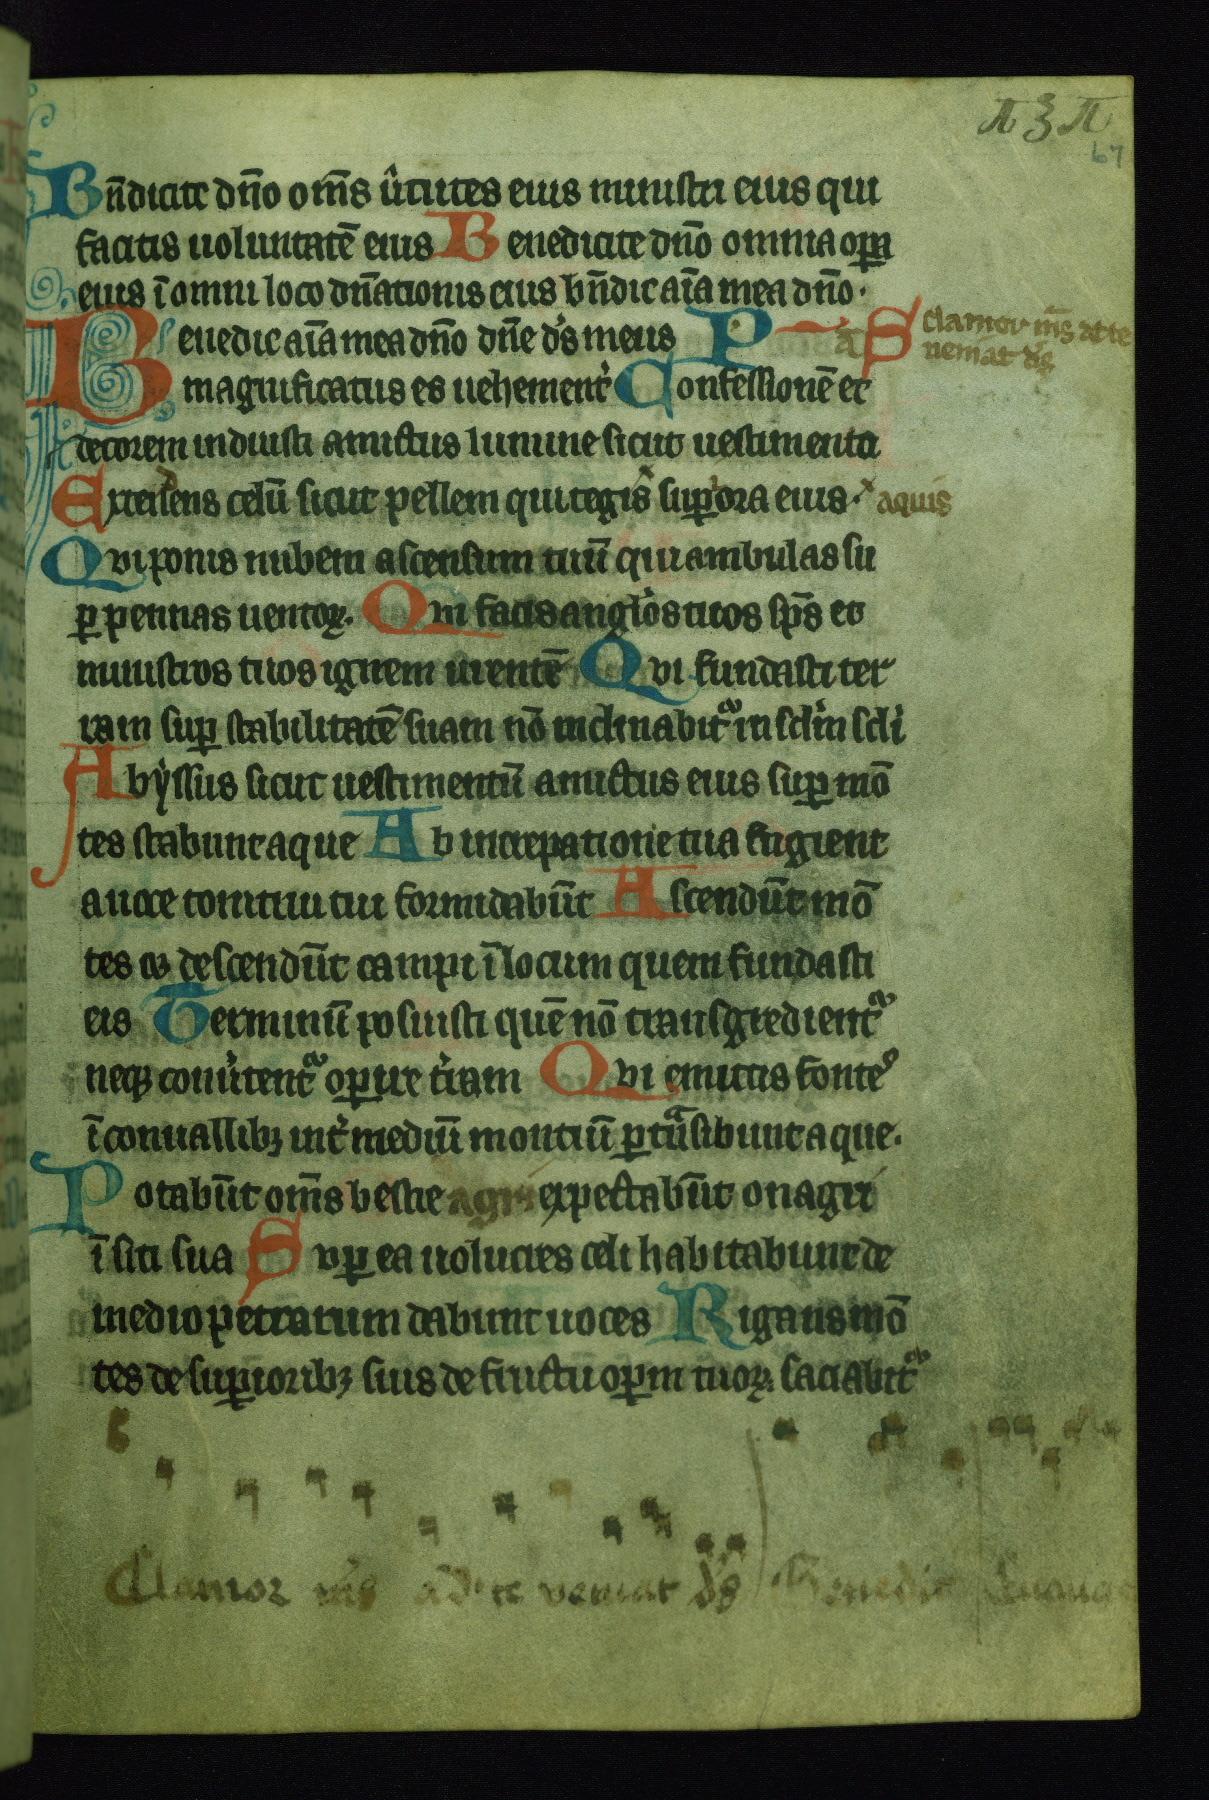 67
Bn̄dicite dn̄o om̄s ûtutes eius ministri eius qui
facitis uoluntatē eius Benedicite dn̄o omnia opa
eius ī omni loco dn̄ationis eius bn̄dic aīa mea dn̄o·
Benedic aīa mea dn̄o dn̄e ds meus P a S clamor m̄s at te
magnificatus es uehement Confessionē et ueniat ds
decorem induisti amictus lumine sicut uestimento
Extendens celū sicut pellem qui tegis supiora eius· aquis
Qvi ponis nubem ascensum tuū qui ambulas su
p pennas uentoꝝ. Qvi facis anglos tuos sp̄s et
ministros tuos ignem urentē Qvi fundasti ter
ram sup stabilitatē suam nō inclinabit in sclm scli
Abyssus sicut uestimentū amictus eius sup mō
tes stabunt aque Ab increpatione tua fugient
a uoce tonitrui tui formidabūt Ascendūt mō
tes et descendūt campi ī locum quem fundasti
eis Terminū posuisti quē nō transgredient
neqꝫ conutent opire tram Qvi emittis fontes
ī conuallibꝫ int mediū montiū ptnsibunt aque.
Potabūt om̄s bestie agri expectabūt onagri
ī siti sua Svp ea uolucres celi habitabunt de
medio petrarum dabunt uoces Rigans mō
tes de supioribꝫ suis de fructu opm tuoꝝ saciabit
Clamor m̄s ad te veniat ds Benedic